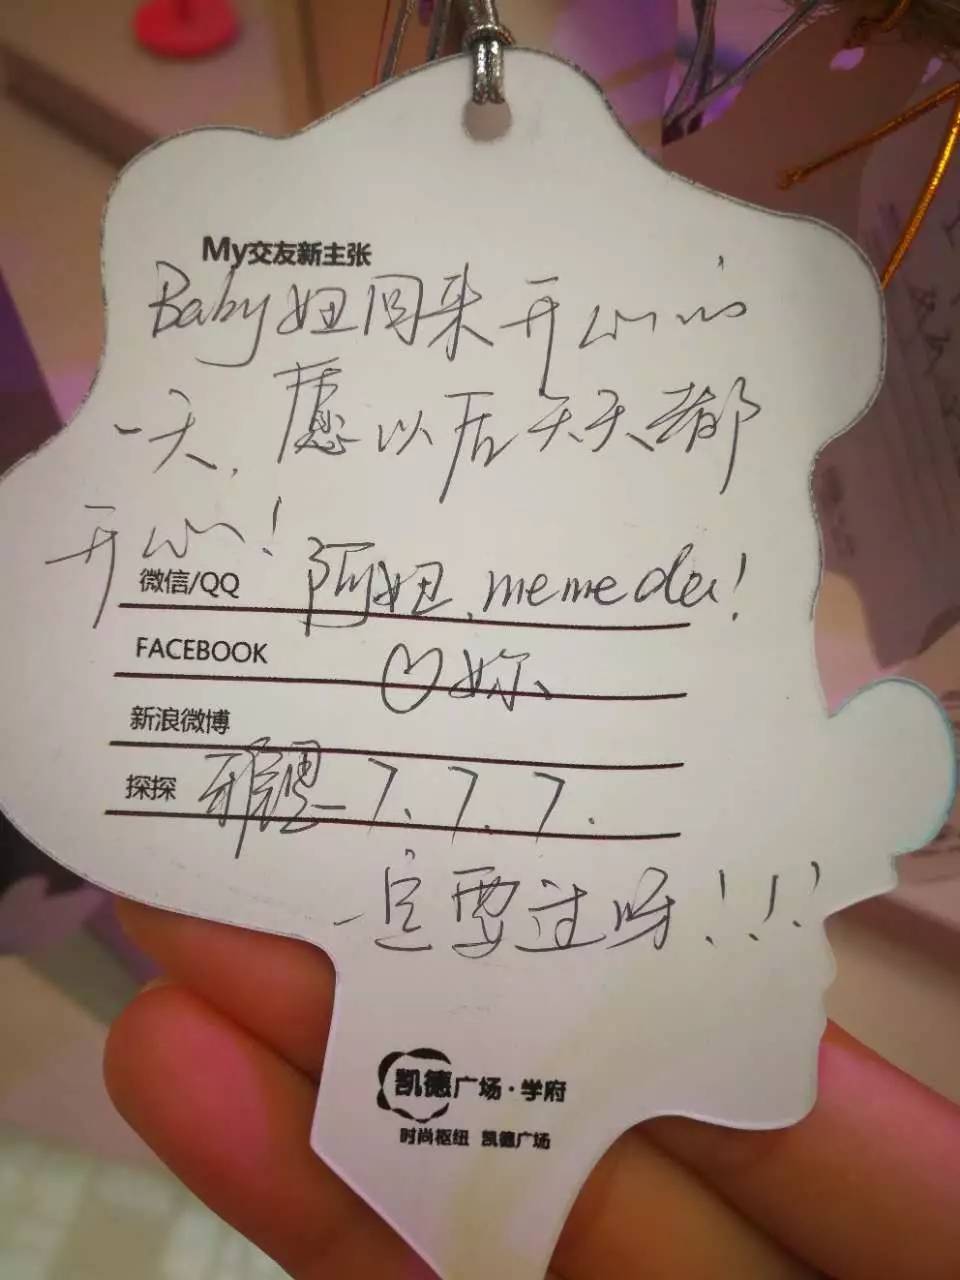 My交友新主张
Baby妞回来开心的
一天,愿以后天天都
开心!
微信/QQ 阿妞,memeda!
FACEBOOK ♡妳、
新浪微博
探探 雅思 7.7.7.
一定要过呀!!!
凯德广场·学府
时尚枢纽 凯德广场